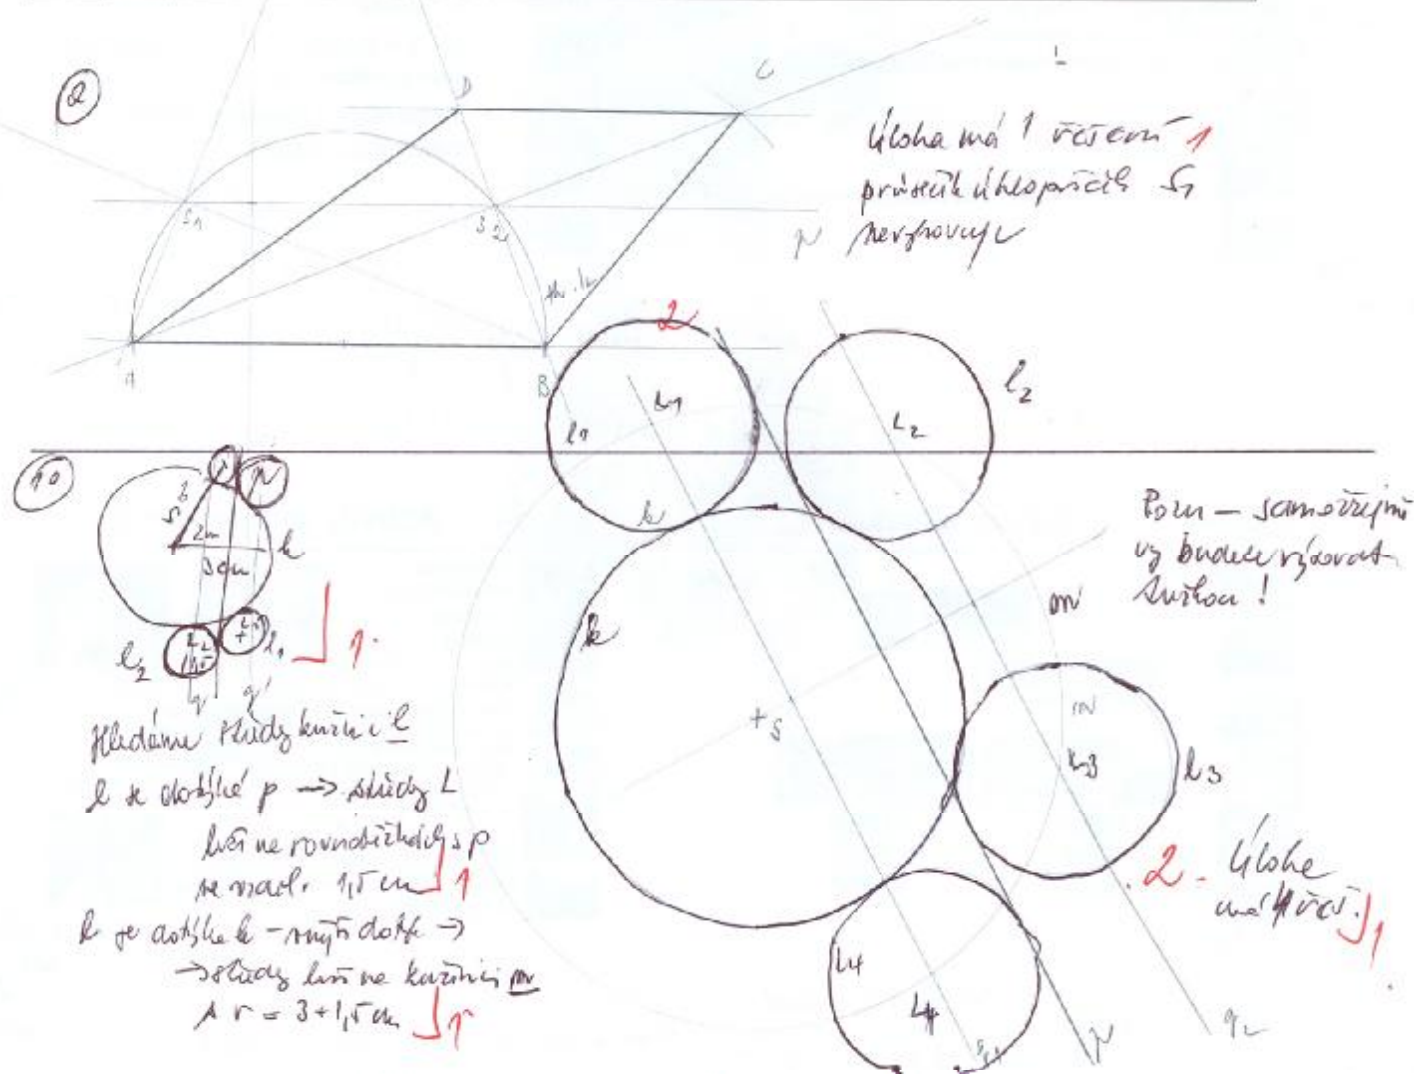 2
D
C
S1
S2
A
B
p
Úloha má 1 řešení 1
průsečík úhlopříček S1
nevyhovuje
2
L1
l1
k
L2
l2
10
2cm
3cm
k
l2
l1
q
q'
1
Hledáme středy kružnic l
l se dotýká p → středy L
leží na rovnoběžkách s p
ve vzdál. 1,5 cm 1
l se dotýká k - vnější dotyk →
→ středy leží na kružnici m
s r = 3+1,5 cm 1
k
+S
m
Pozn - samozřejmě
vy budete rýsovat
tužkou!
L3
l3
2
Úloha
má 4 řeš. 1
L4
p
q2